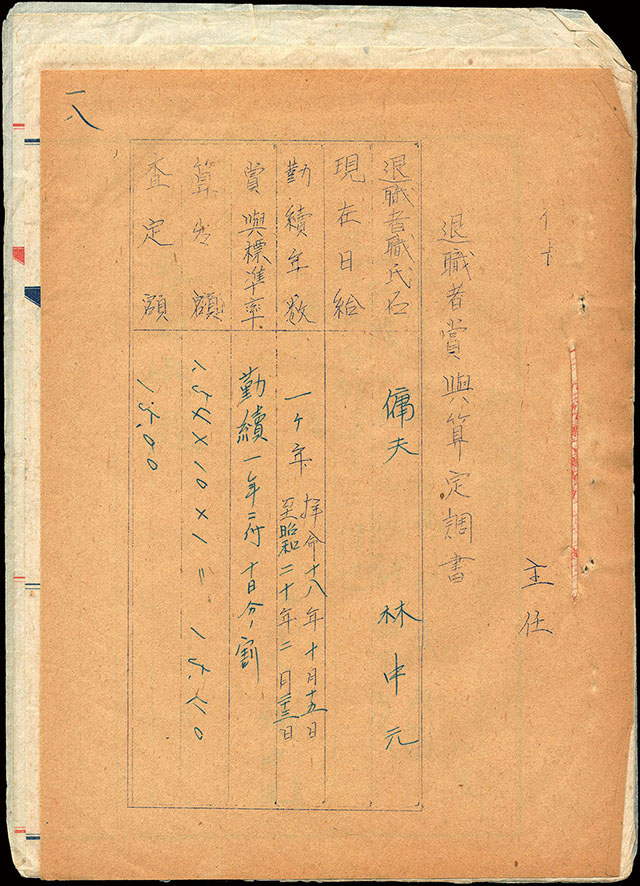 主任
退職者賞與算定調書
退職者職氏名 傭夫 林中元
現在日給
勤續年数 一ヶ年 拝命十八年十月十五日
至昭和二十年二月二十三日
賞與標準率 勤續一年ニ付十日分ノ割
算出額 1.54×10×1=15.40
査定額 15.00
一八